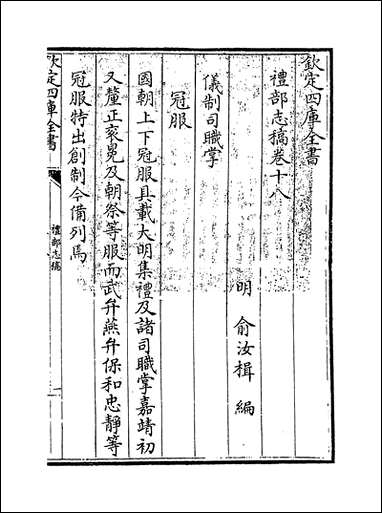 欽定四庫全書
禮部志稿卷十八
明 俞汝楫 編
儀制司職掌
冠服
國朝上下冠服具載大明集禮及諸司職掌嘉靖初
又釐正衮冕及朝祭等服而武弁燕弁保和忠靜等
冠服特出創制今備列焉
欽定四庫全書
禮部志稿
一